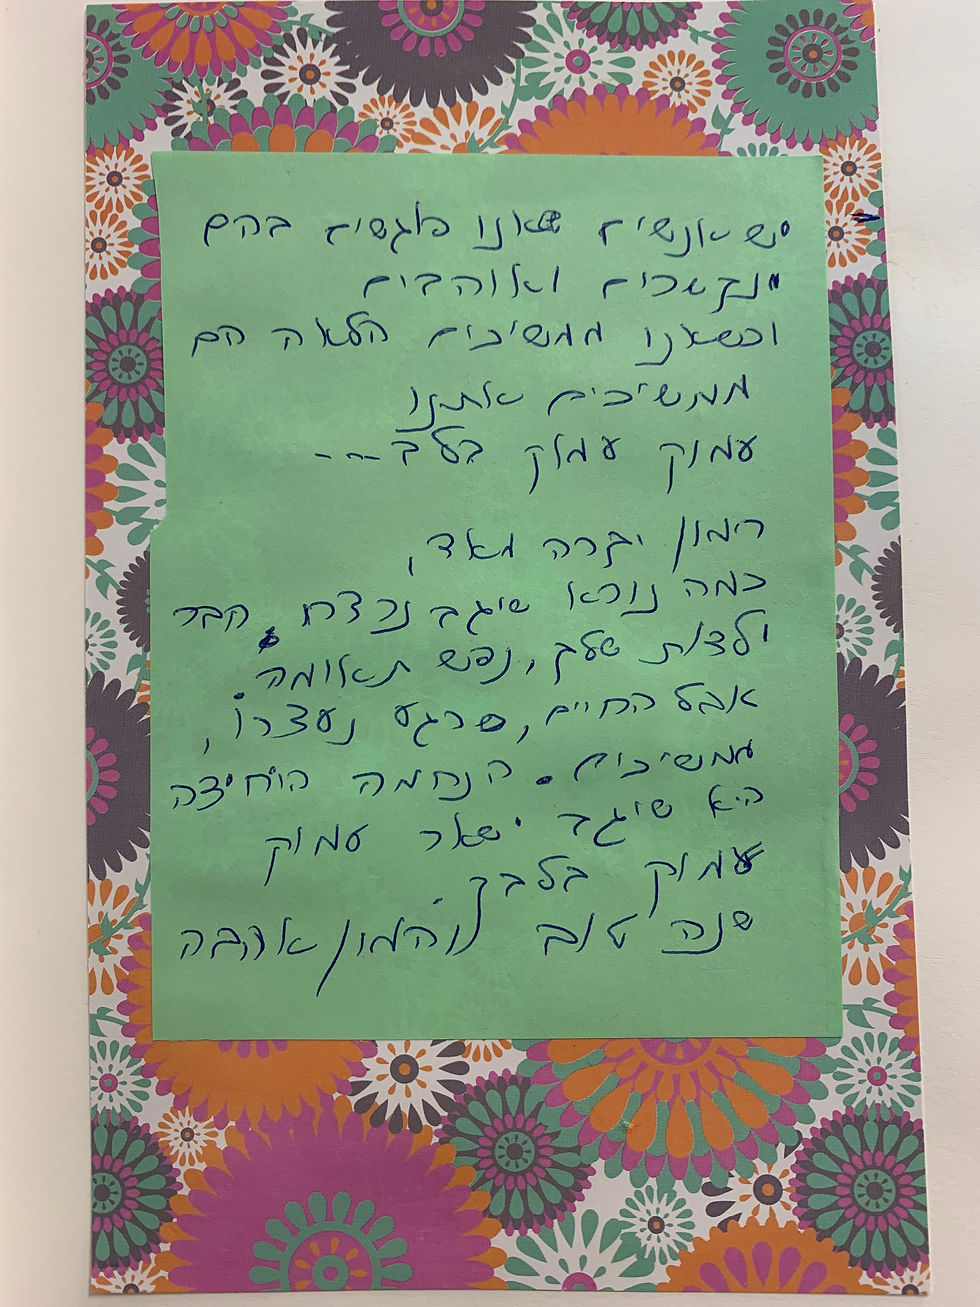 יש אנשים שאנו פוגשים בהם
ונקשרים ואוהבים
וכשאנו ממשיכים הלאה הם
ממשיכים אתנו
עמוק עמוק בלב ---
רימון יקרה מאד,
כמה נורא שיגב נרצח. חבר
ילדות שלך, נפש תאומה.
אבל החיים, שרגע נעצרו,
ממשיכים. הנחמה היחידה
היא שיגב ישאר עמוק
עמוק בלבך.
שנה טוב והמון אהבה